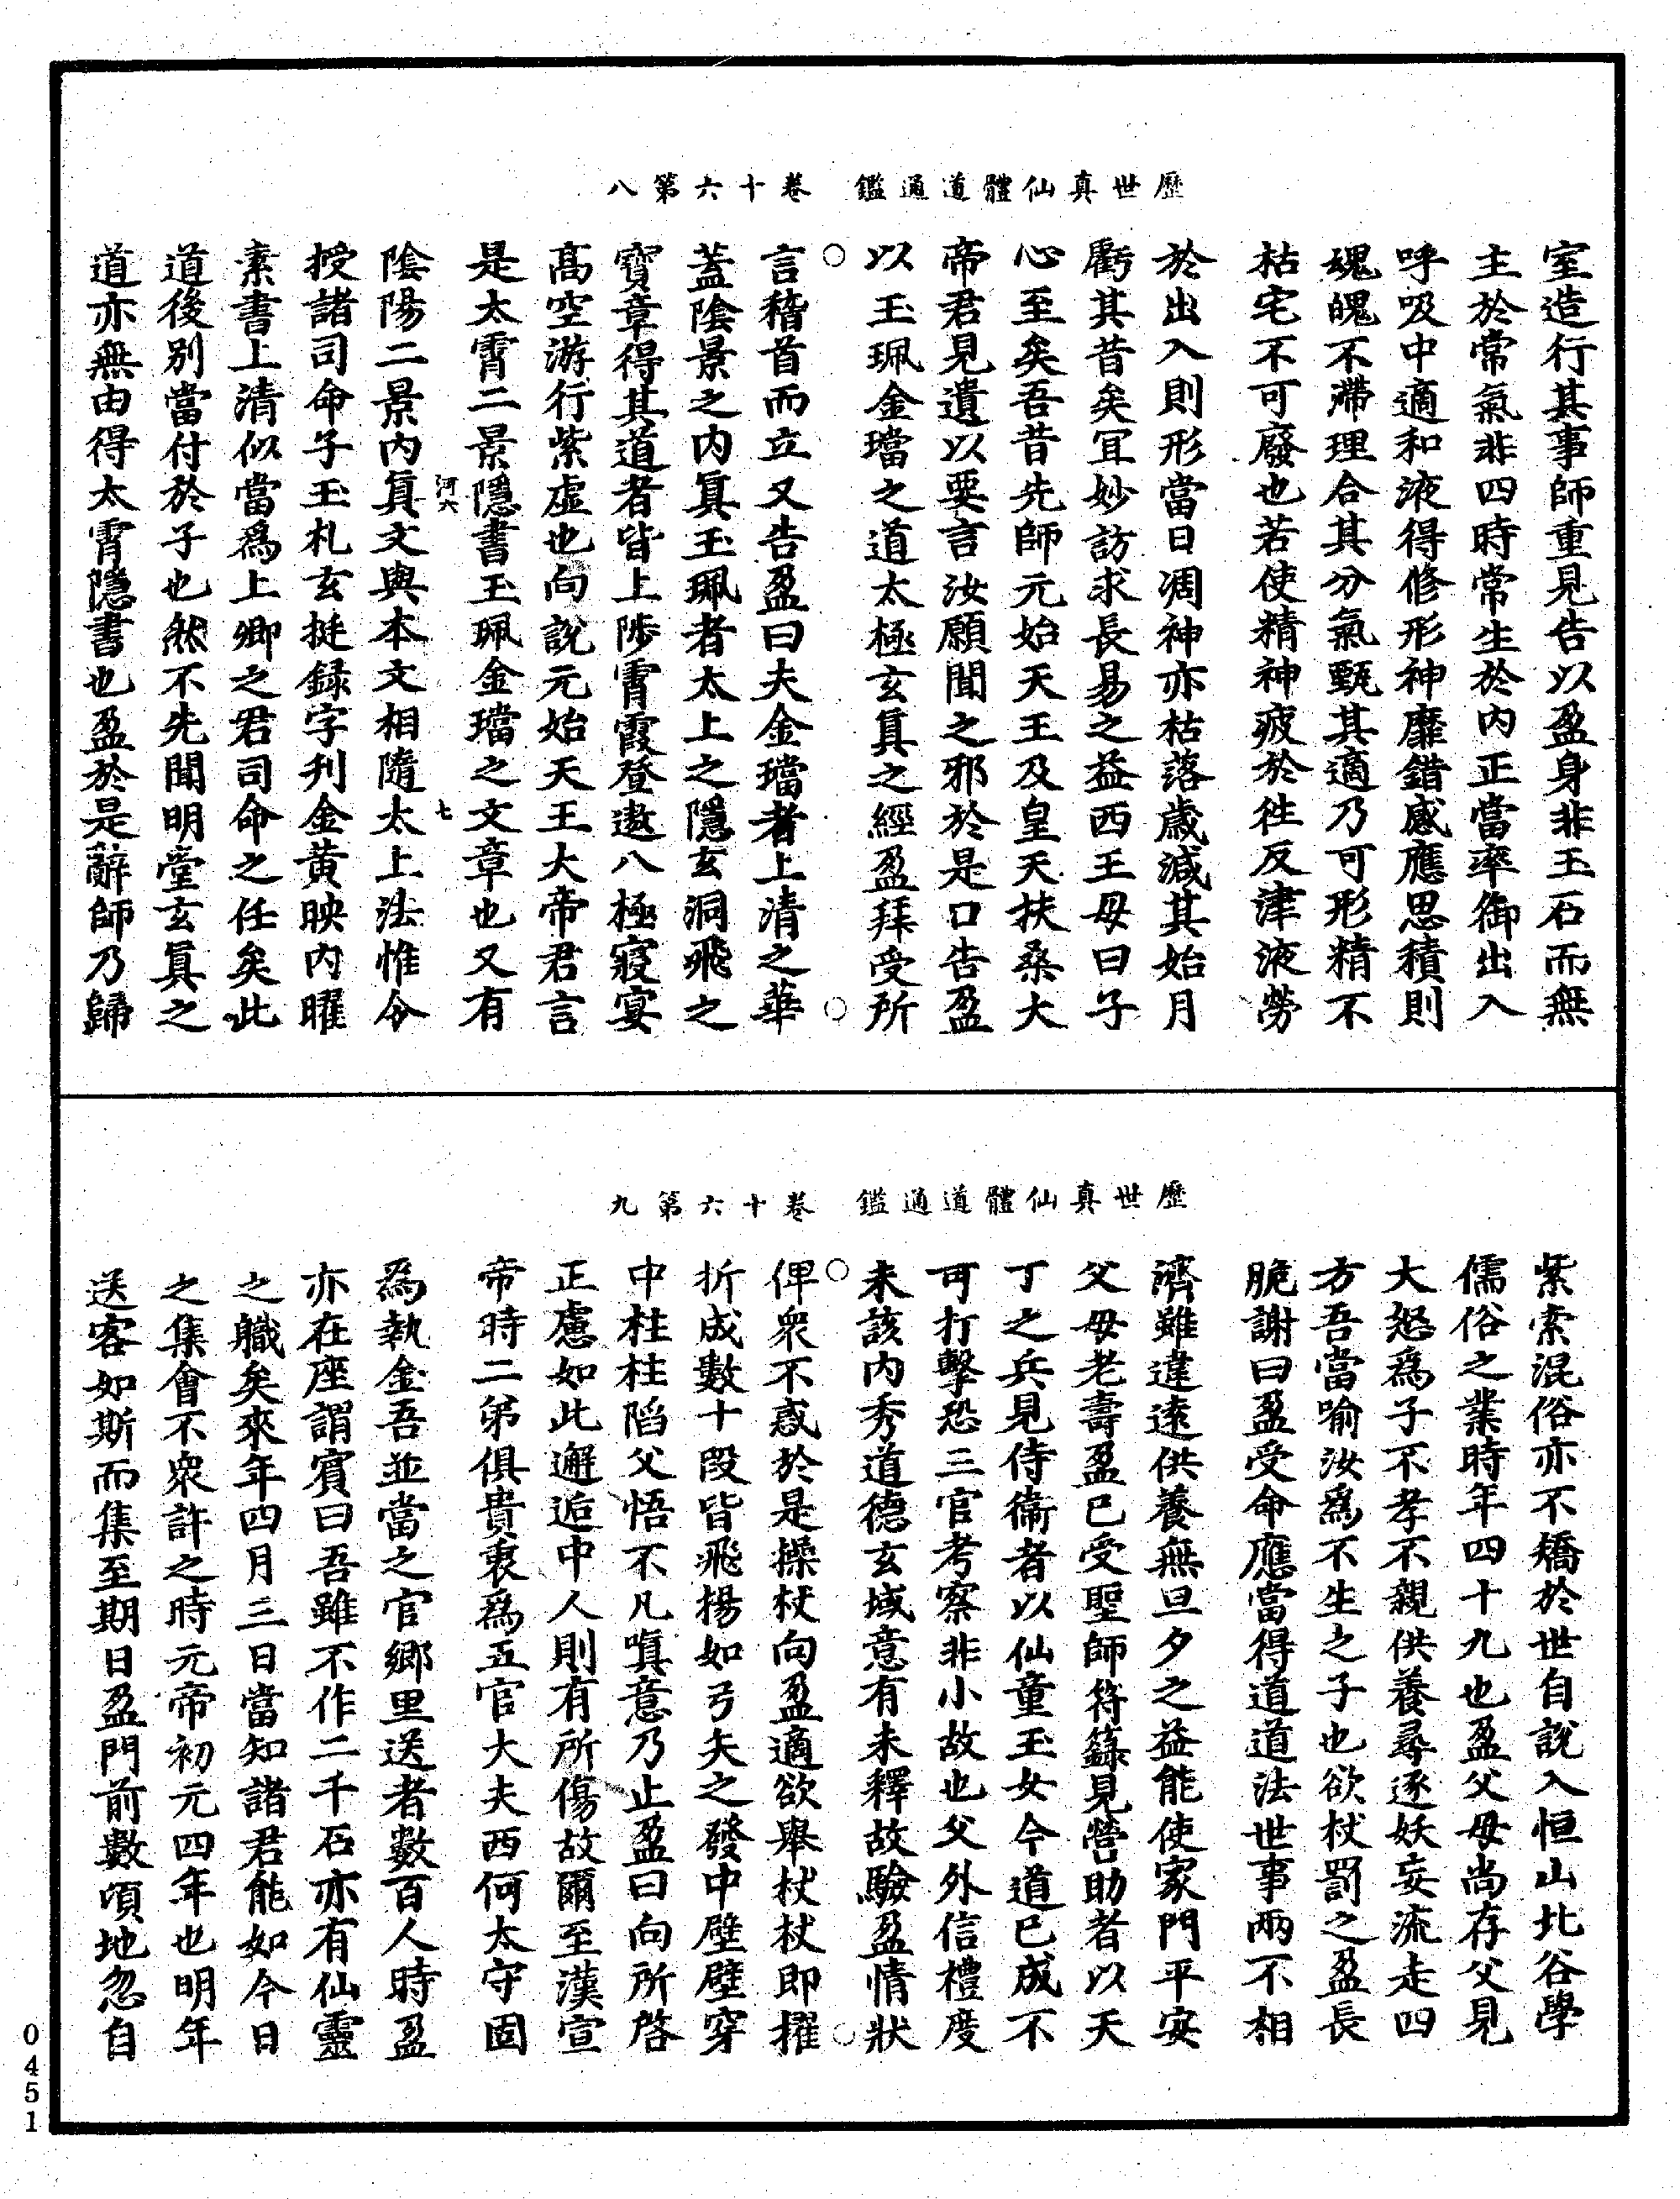 歷世真仙體道通鑑　卷十六第八
室造行其事師重見告以盈身非玉石而無
主於常氣非四時常生於內正當率御出入
呼吸中適和液得修形神靡錯感應思積則
魂魄不滯理合其分氣甄其適乃可形精不
枯宅不可廢也若使精神疲於徃反津液勞
於出入則形當日凋神亦枯落歲減其始月
虧其昔矣冝妙訪求長易之益西王母曰子
心至矣吾昔先師元始天王及皇天扶桑大
帝君見遺以要言汝願聞之邪於是口告盈
以玉珮金璫之道太極玄真之經盈拜受所
言稽首而立又告盈曰夫金璫者上清之華
蓋陰景之內真玉珮者太上之隱玄洞飛之
寶章得其道者皆上陟霄霞登遨八極寢宴
高空游行紫虛也向說元始天王大帝君言
是太霄二景隱書玉珮金璫之文章也又有
河六　七
陰陽二景內真文與本文相隨太上法惟令
授諸司命子玉札玄挺録字刋金黃映內曜
素書上清似當爲上卿之君司命之任矣此
道後別當付於子也然不先聞明堂玄真之
道亦無由得太霄隱書也盈於是辭師乃歸
歷世真仙體道通鑑　卷十六第九
紫索混俗亦不矯於世自說入恒山北谷學
儒俗之業時年四十九也盈父母尚存父見
大怒爲子不孝不親供養尋逐妖妄流走四
方吾當喻汝爲不生之子也欲杖罰之盈長
脆謝曰盈受命應當得道道法世事兩不相
濟雖違遠供養無旦夕之益能使家門平安
父母老壽盈已受聖師符籙見營助者以天
丁之兵見侍衞者以仙童玉女今道已成不
可打擊恐三官考察非小故也父外信禮度
未該內秀道德玄域意有未釋故驗盈情狀
俾衆不惑於是操杖向盈適欲舉杖杖即摧
折成數十段皆飛揚如弓矢之發中壁壁穿
中柱柱陷父悟不凡嗔意乃止盈曰向所啓
正慮如此邂逅中人則有所傷故爾至漢宣
帝時二弟俱貴衷爲五官大夫西何太守固
為執金吾並當之官鄉里送者數百人時盈
亦在座謂賓曰吾雖不作二千石亦有仙靈
之軄矣來年四月三日當知諸君能如今日
之集會不衆許之時元帝初元四年也明年
送客如斯而集至期日盈門前數頃地忽自
0451